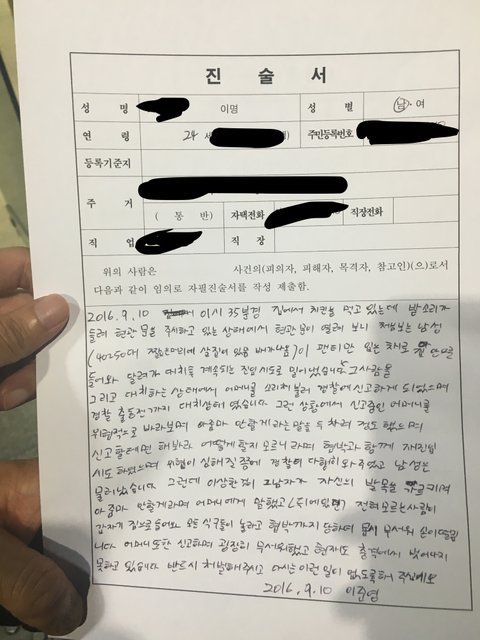 진 술 서
성 명 이명 성 별 남·여
연 령 24 세 주민등록번호
등록기준지
주 거
( 통 반) 자택전화 직장전화
직 업 직 장
위의 사람은 사건의(피의자, 피해자, 목격자, 참고인)(으)로서
다음과 같이 임의로 자필진술서를 작성 제출함.
2016.9.10 01시 35분경 집에서 치킨을 먹고 있는데 발소리가
들려 현관문을 주시하고 있는 상태에서 현관문이 열려 보니 처음보는 남성
(40~50대 짧은머리에 삼각이 있음 배가나옴)이 팬티만 입는 채로
들어와 달려가 대치독 계속되는 진입시도로 밀어냈습니다 그사람을
그리고 대치하는 상태에서 어머니를 소리쳐 불러 경찰에 신고하게 되었으며
경찰 출동전까지 대치상태 였습니다. 그런 상황에서 신고중인 어머니를
위협적으로 바라보며 아줌마 안할게라는 말을 두 차례 정도 했으며
신고할테면 해봐라 어떻게할지 모르니 라며 협박과 함께 재진입
시도 하였으며 위협이 심해질 즘에 경찰이 다행히 와주었고 남성은
물러났습니다. 그런데 이상한점이 그남자가 자신의 발목을 가리키며
아줌마 안할게라며 어머니에게 말했고 전혀모르는사람이
갑자기 집으로 들어와 모든 식구들이 놀라고 협박까지 당하며 몹시 무서워 손이떨립
니다 어머니또한 신고하며 굉장히 무서워했고 현재도 충격에서 벗어나지
못하고 있습니다 반드시 처벌해주시고 다시는 이런 일이 없도록해 주십시오
2016.9.10 이준영